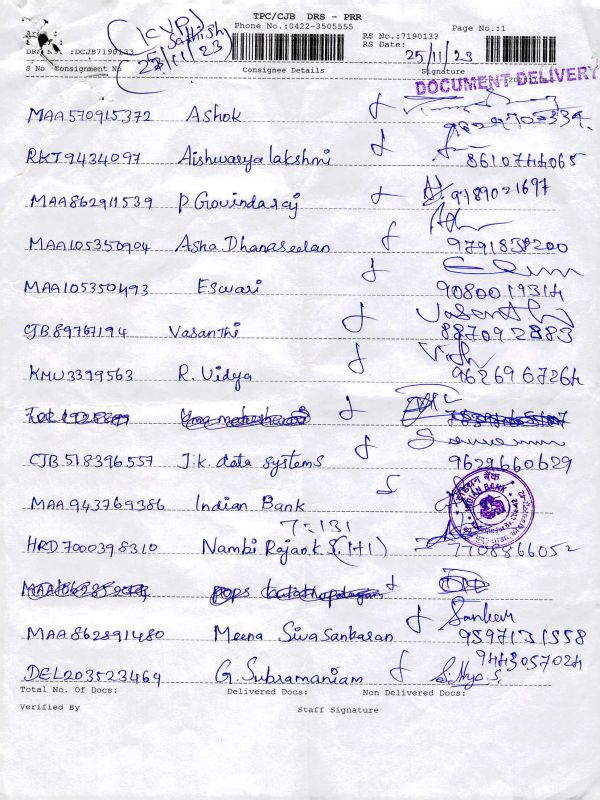 TPC/CJB DRS - PRR
Phone No.:0422-3505555
Page No.:1
RS No.:7190133
RS Date:
25/11/23
DRS No. :DCJB7190133
(KVP)
Sathish
25/11/23
S No Consignment No Consignee Details Signature
DOCUMENT DELIVERY
MAA570915372 Ashok
RKT9434097 Aishwarya lakshmi 8610744065
MAA862911539 P Govindaraj 9789021697
MAA105350904 Asha Dhanaseelan 9791838200
MAA105350493 Eswari 9080019314
CJB89767194 Vasanthi Vasanthi
887092883
KMU3399563 R. Vidya 9626967264
CJB518396557 J.k. data systems 9629660629
MAA943769386 Indian Bank
इंडियन बैंक
INDIAN BANK
T-131
HRD7000398310 Nambi Rajan K.S (1+1) 7708866052
MAA862891480 Meena Siva Sankaran Sankar
9597131558
9443057024
DEL203523469 G. Subramaniam
Total No. Of Docs: Delivered Docs: Non Delivered Docs:
Verified By Staff Signature